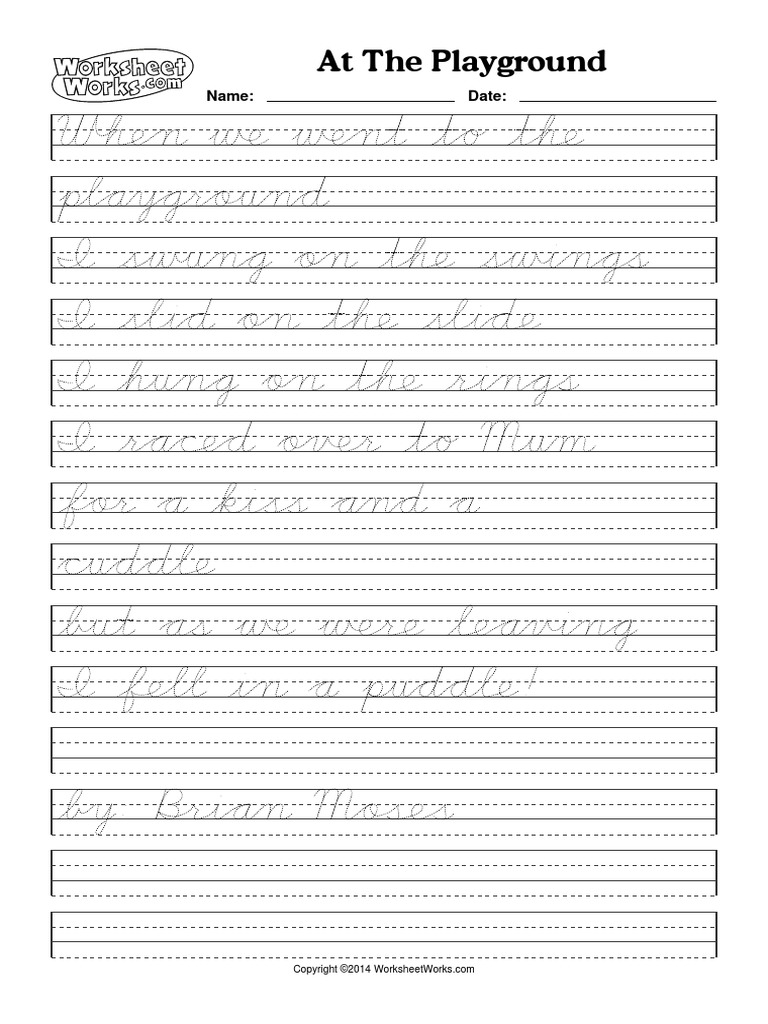 Worksheet
Works.com
At The Playground
Name: Date:
When we went to the
playground
I swung on the swings
I slid on the slide
I hung on the rings
I raced over to Mum
for a kiss and a
cuddle
but as we were leaving
I fell in a puddle!
by Brian Moses
Copyright ©2014 WorksheetWorks.com